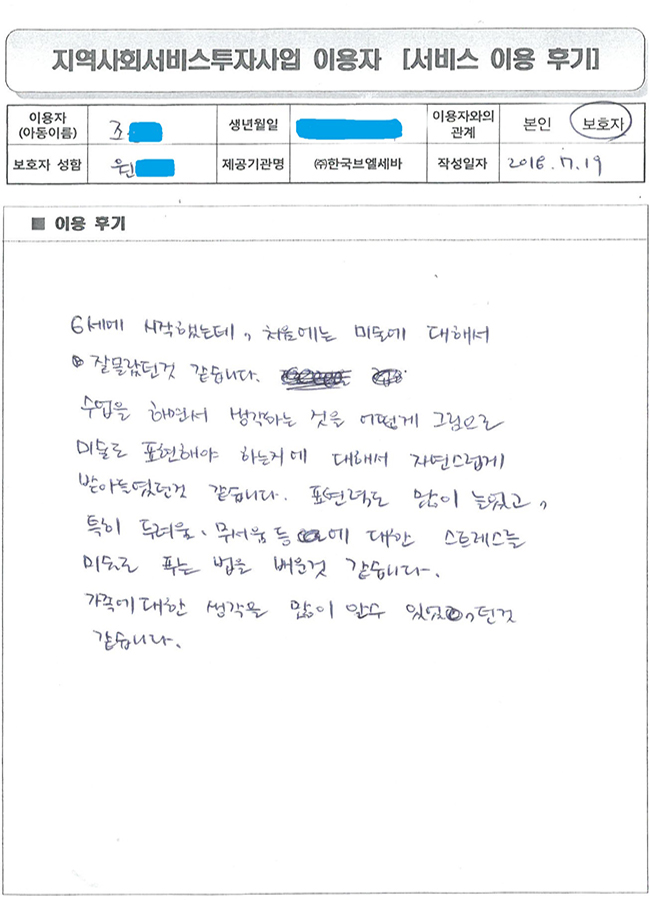 지역사회서비스투자사업 이용자 [서비스 이용 후기]
이용자 (아동이름) 조 생년월일 이용자와의 관계 본인 보호자
보호자 성함 원 제공기관명 ㈜한국브엘세바 작성일자 2018.7.19
■ 이용 후기
6세에 시작했는데, 처음에는 미술에 대해서
잘몰랐던것 같습니다.
수업을 하면서 생각하는 것을 어떻게 그림으로
미술로 표현해야 하는지에 대해서 자연스럽게
받아들였던것 같습니다. 표현력도 많이 늘었고,
특히 두려움, 무서움등 에 대한 스트레스를
미술로 푸는 법을 배운것 같습니다.
가족에대한 생각을 많이 알수 있었던것
같습니다.